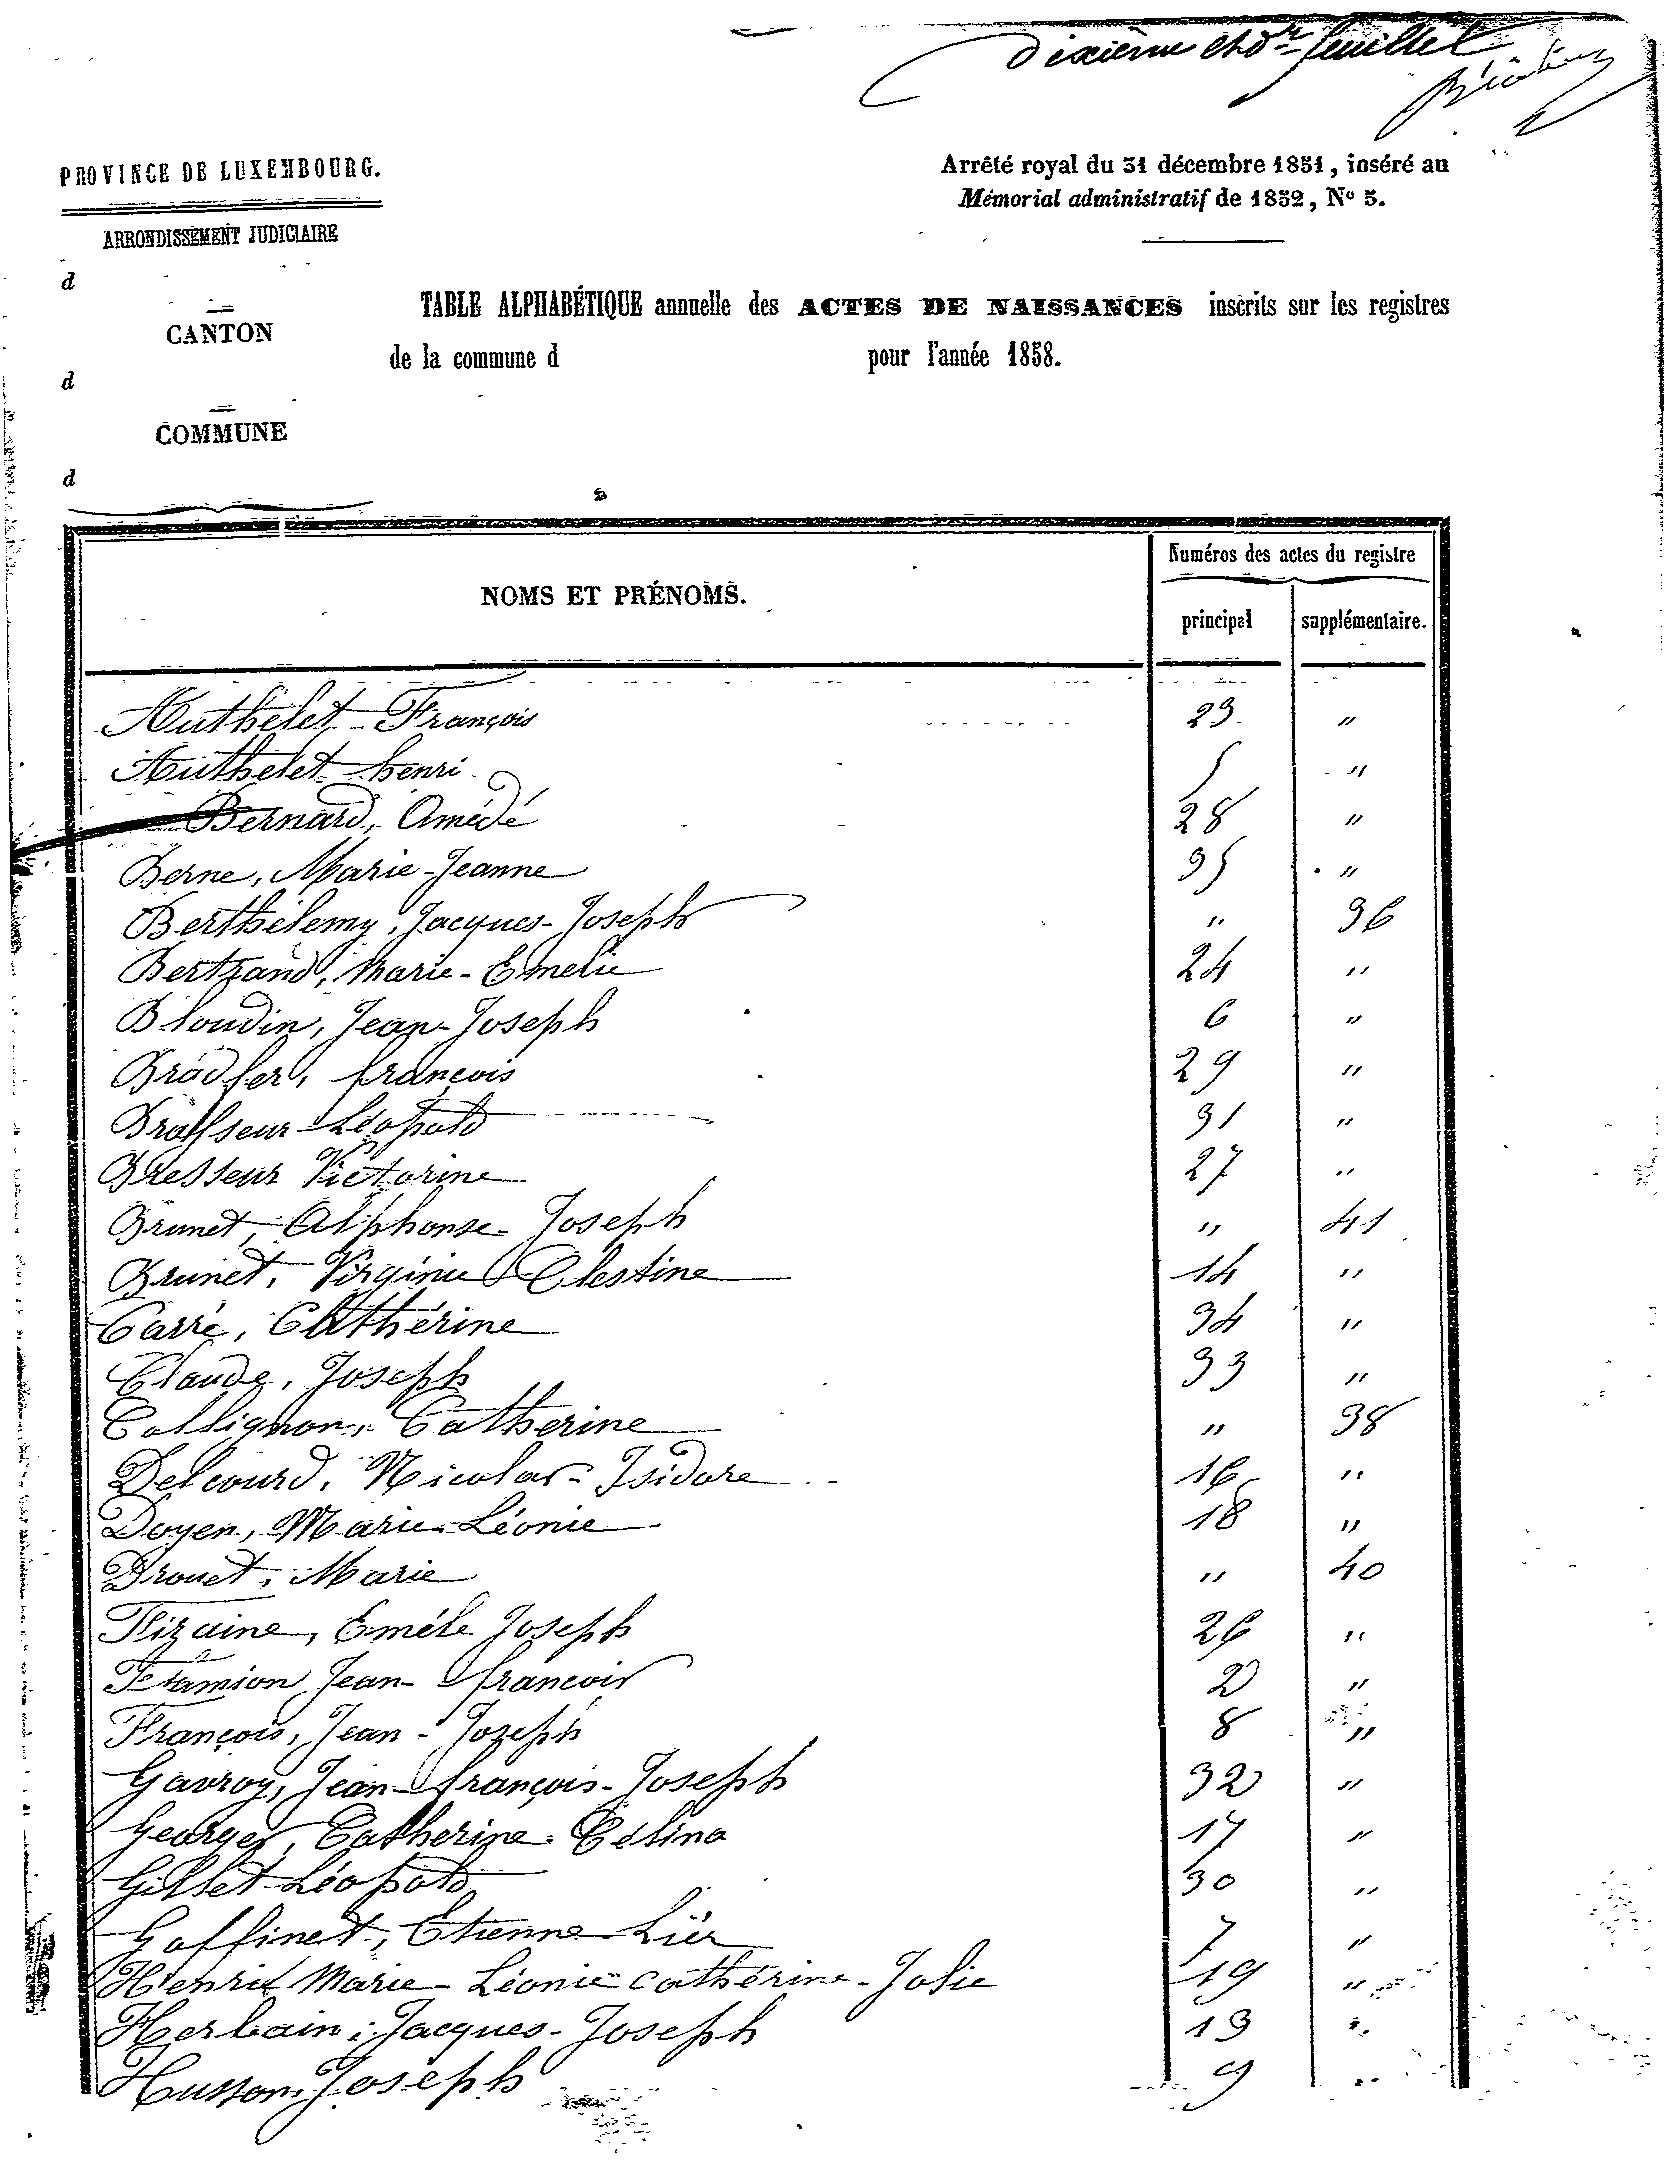 dixième et dr feuillet
PROVINCE DE LUXEMBOURG.
ARRONDISSEMENT JUDICIAIRE
d
CANTON
d
COMMUNE
d
Arrêté royal du 31 décembre 1851, inséré au
Mémorial administratif de 1852, No 5.
TABLE ALPHABÉTIQUE annuelle des ACTES DE NAISSANCES inscrits sur les registres
de la commune d pour l'année 1858.
NOMS ET PRÉNOMS.
Numéros des actes du registre
principal supplémentaire.
Authelet François 23 "
Authelet henri 5 "
Bernard, Amédé 28 "
Berne, Marie-Jeanne 35 "
Berthélemy, Jacques-Joseph " 36
Bertrand, Marie-Emelie 24 "
Bloudin, Jean-Joseph 6 "
Bradfer, françois 29 "
Brasseur Léopold 31 "
Bresseur Victorine 27 "
Brunet, Alphonse-Joseph " 41
Brunet, Virginie Clestine 14 "
Carré, Cathérine 34 "
Claude, Joseph 33 "
Collignon, Catherine " 38
Delcourd, Nicolas-Isidore 16 "
Doyen, Marie-Léonie 18 "
Drouet, Marie " 40
Fizaine, Eméle Joseph 26 "
Jean-françois 2 "
François, Jean-Joseph 8 "
Gavroy, Jean-françois-Joseph 32 "
Georges, Catherine-Célina 17 "
Gillet Léopold 30 "
Goffinet, Etienne 7 "
Henri Marie-Léonie Cathérine-Jolie 19 "
Herbain, Jacques-Joseph 13 "
Husson, Joseph 9 "